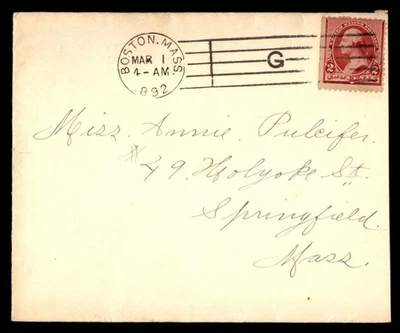 BOSTON, MASS.
MAR 1
4-AM
1892
G
2 2
TWO CENTS
Miss. Annie. Pulcifer.
# 49. Holyoke St.
Springfield.
Mass.